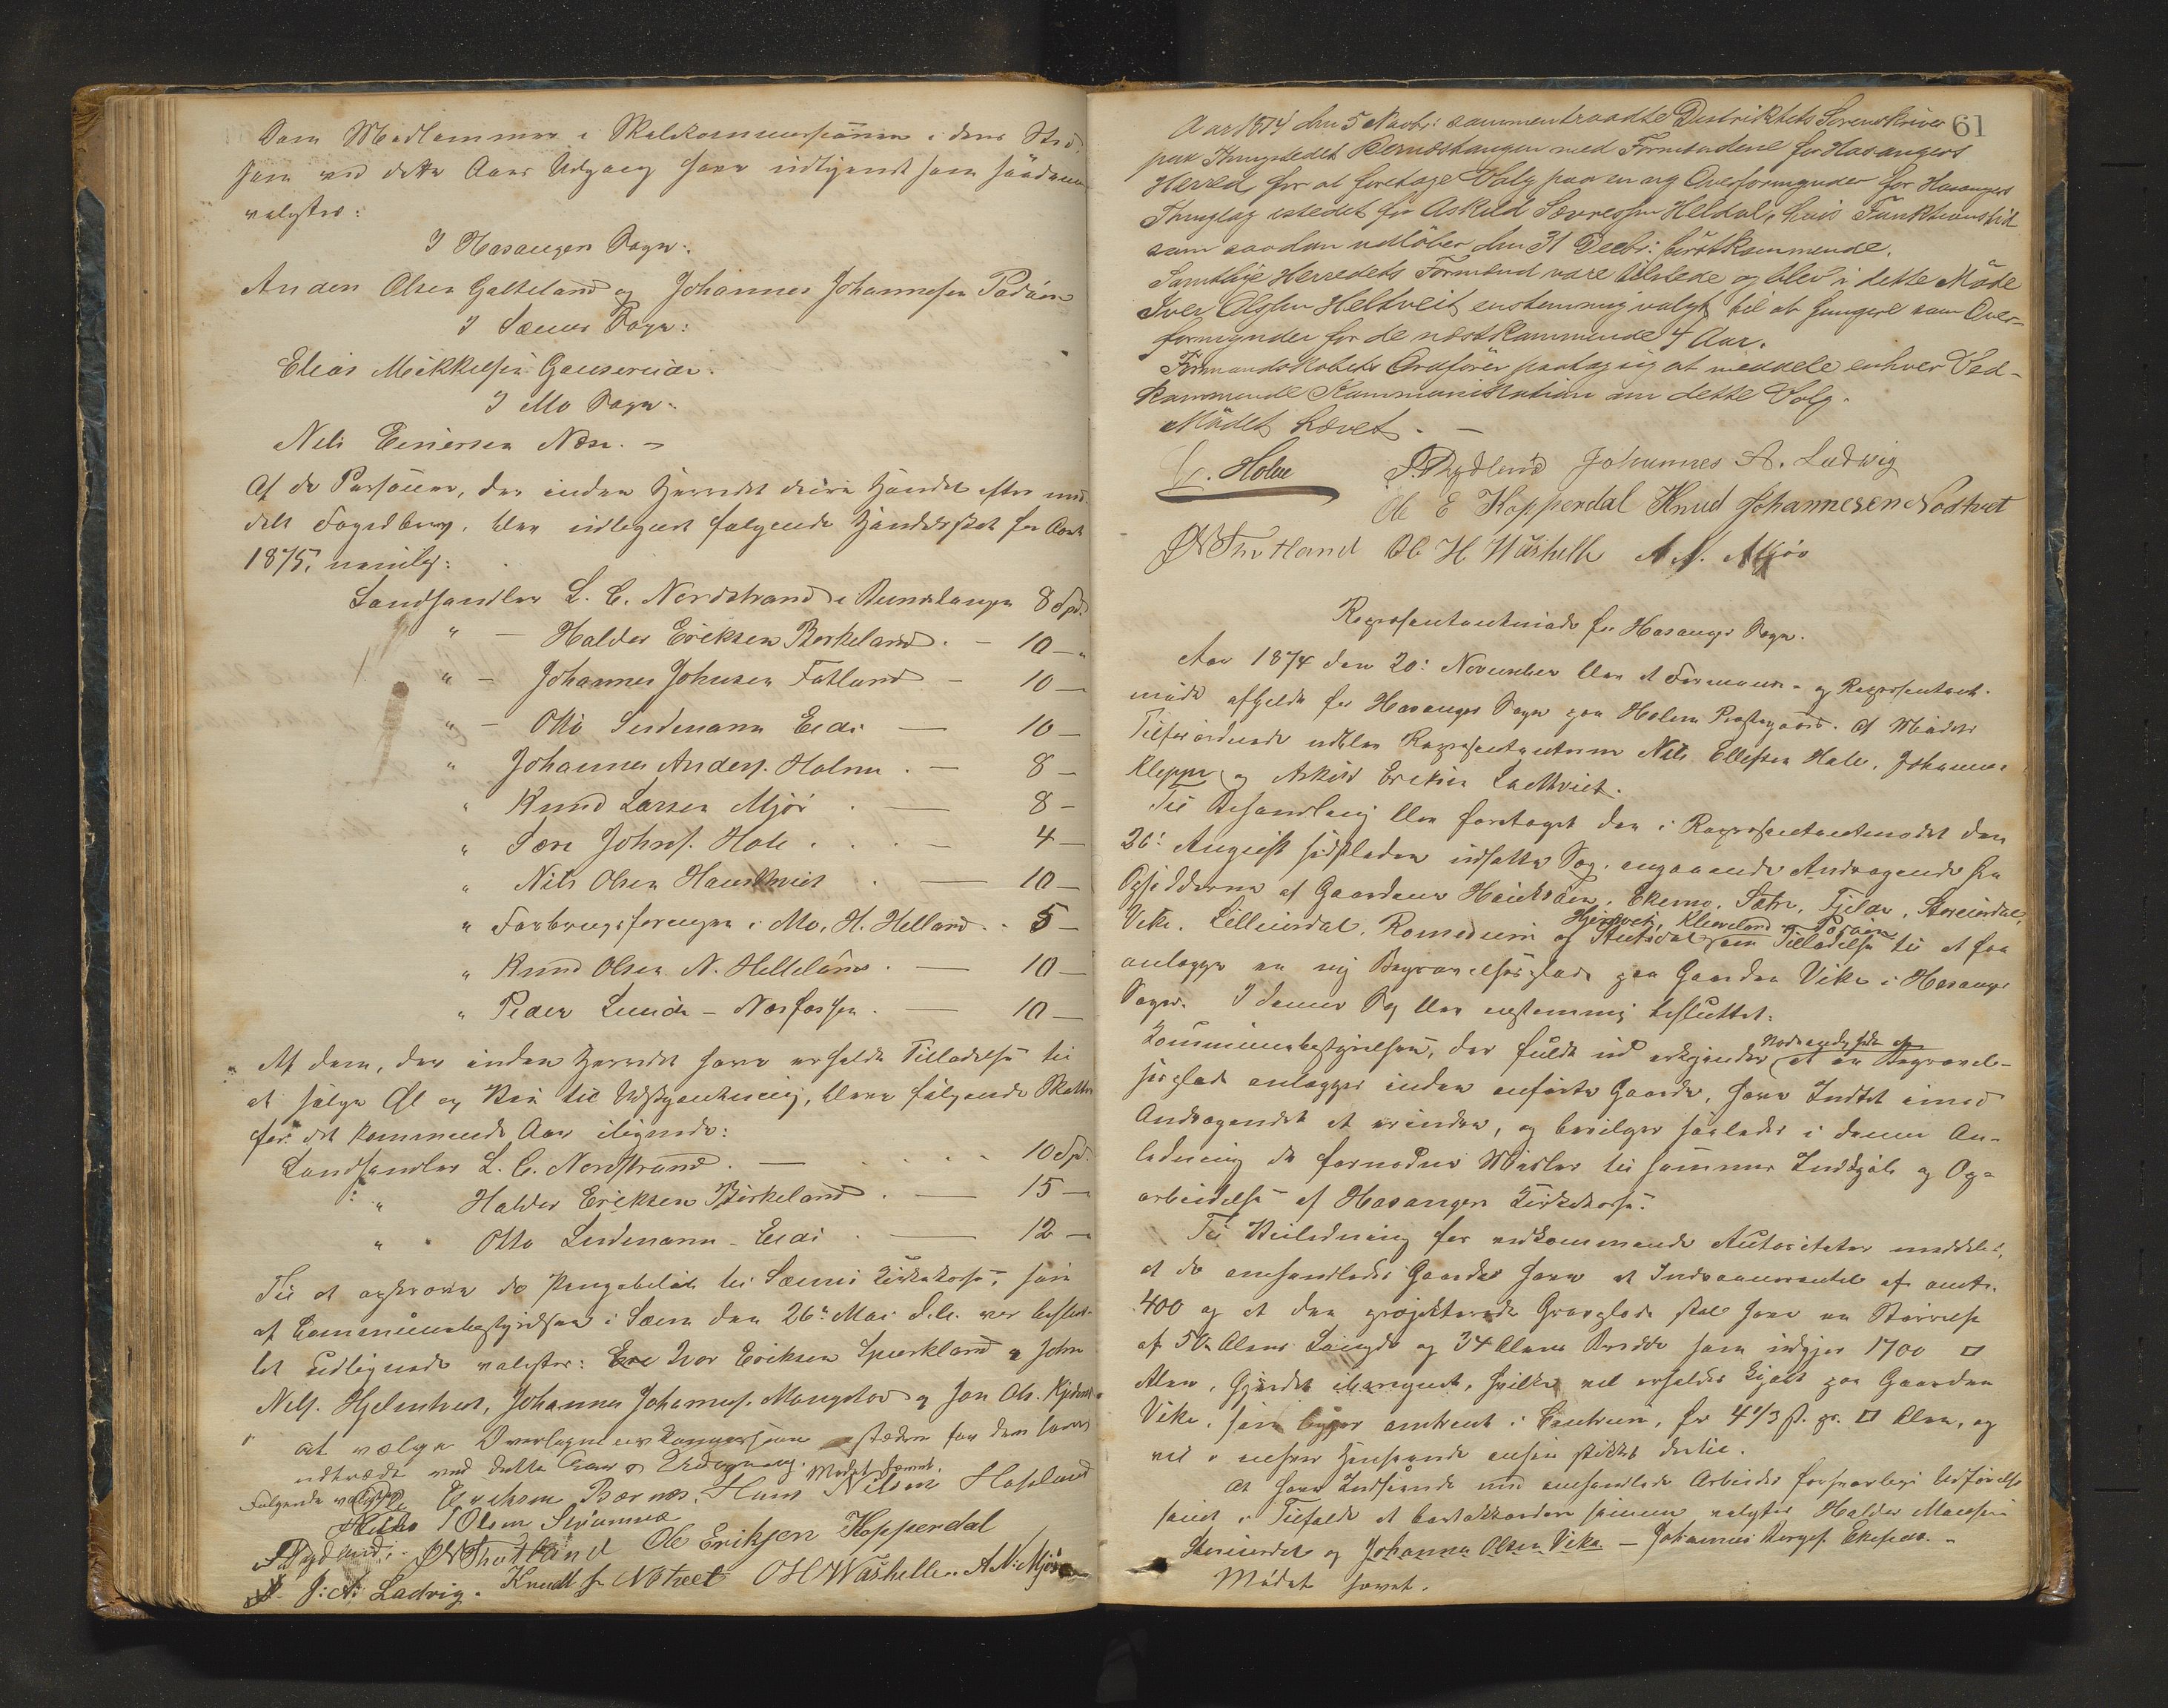 Som Medlemmer i Skolekommissionen i deres Sted,
som ved dette Aars Udgang have udtjent som saadanne
valgtes:
I Hosanger Sogn.
Anders Olsen Galteland og Johannes Johannesen Padøen
I Sæms Sogn:
Elias Mikkelsen
I Mo Sogn.
Nils Einersen Næse. –
Af de Personer, der inden Herredet drive Handel efter med-
delt Fogedbrev, blev udlignet følgende Handelsskat for Aaret
1875, nemlig:
Landhandler L. C. Nordstrand i Bernestangen 8 Spd.
" – Haldor Eriksen Birkeland . – 10 – "
" – Johannes Johnsen Fotland – 10 –
" – Otto Lindemann Eide — 10 –
" Johannes Anders. Holme . – 8 –
" Knud Larsen Mjøs . — 8 –
" Søren Johns. Hole . . . – 4 –
" Nils Olsen Haukhveit . — 10 –
" Forbrugsforeningen i Mo, H. Helland . . 5 –
" Knud Olsen N. Helleland . — 10 –
" Peder Lunde – Næsfossen . — 10 –
Af dem, der inden Herredet have erholdt Tilladelse til
at sælge Øl og Vin til Udskjænkning, blev følgende Skatter
for det kommende Aar ilignede:
Landhandler L. C. Nordstrand . — . . . . 10 Spd.
" Haldor Eriksen Birkeland . — 15 –
" " Otto Lindemann – Eide . — 12 –
Til at opkræve de Pengebeløb til Sæms Kirkekasse, som
af Communebestyrelsen i Sæm den 26de Mai d. A. var beslut-
tet udlignede valgtes: Ivar Eriksen Spurkland, John
Nils. Hjelmtveit, Johannes Johannes. Mangstad og Jon Ols.
at vælge Overligningskommission istedet for dem som
udtræde ved dette Aars Udgang. Mødet hævet.
Følgende valgtes
Eriksen Barnes. Hans Nilsen Hosland
Olsen
P. Rydland. O N Thotland Ole Eriksen Kopperdal
J: A: Ladvig. Knudt J. Nøtveet O H Washelle. A N: Mjøs
61
Aar 1874 den 5 Novbr: sammentraadte Distriktets Sorenskriver
paa Thingstedet Bernestangen med Formændene for Hosangers
Herred for at foretage Valg paa en ny Overformynder for Hosangers
Thinglag istedet for Askild Sævresen Heldal, hvis Funktionstid
som saadan udløber den 31 Decbr: førstkommende.
Samtlige Herredets Formænd vare tilstede og blev i dette Møde
Iver Olsen Heltveit enstemmig valgt til at fungere som Over-
formynder for de næstkommende 4 Aar.
Formandskabets Ordfører paatog sig at meddele enhver Ved-
kommende Kommunikation om dette Valg.
Mødet hævet. –
Holm P. Rydland Johannes A. Ladvig
Ole E Kopperdal Knud Johannesen Nodtvet
O N Thotland Ole H Washelle A N. Mjøs
Repræsentantmøde for Hosanger Sogn.
Aar 1874 den 20de November blev et Formands- og Repræsentant-
møde afholdt for Hosanger Sogn paa Holm Præstegaard. Af Mødets
Tilforordnede udeblev Repræsentanterne Nils Ellefsen Hole, Johannes
Kleppe og Askild Eriksen Ladthveit.
Til Behandling blev foretaget den i Repræsentantmødet den
26de August sidstleden udsatte Sag, angaaende Andragende fra
Opsidderne af Gaardene Eknes, Sætre, Fjelde, Storeurdal,
Hjertvet, Kleveland og Padøen
Vike, Lilleurdal, Romereim og Stutsdal om Tilladelse til at faa
anlægge en ny Begravelsesplads paa Gaarden Vike i Hosanger
Sogn. I denne Sag blev enstemmig besluttet:
Nødvendigheden af
Kommunebestyrelsen, der fuldt ud erkjender at en Begravel-
sesplads anlægges inden anførte Gaarde, have Intet imod
Andragendet at erindre, og bevilger saaledes i denne An-
ledning de fornødne Midler til sammes Indkjøb og Op-
arbeidelse af Hosangers Kirkekasse.
Til Veiledning for vedkommende Autoriteter meddeles,
at de omhandlede Gaarde have et Indvaanerantal af omtr.
400 og at den projekterede Gravplads skal have en Størrelse
af 50 Alens Længde og 34 Alens Bredde som udgjør 1700 □
Alen, Gjerdet iberegnet, hvilke vil erholdes Kjøbt paa Gaarden
Vike, som ligger omtrent i Centrum, for 4 1/3 ß. pr. □ Alen, og
vel i enhver Henseende ansees skikket dertil.
At have Indseende med omhandlede Arbeides forsvarlige Udførelse
samt i Tilfælde at bortakkordere samme valgtes Haldor Monsen
Storeurdal og Johannes Olsen Vike – Johannes Børges. Eknes. –
Mødet hævet.